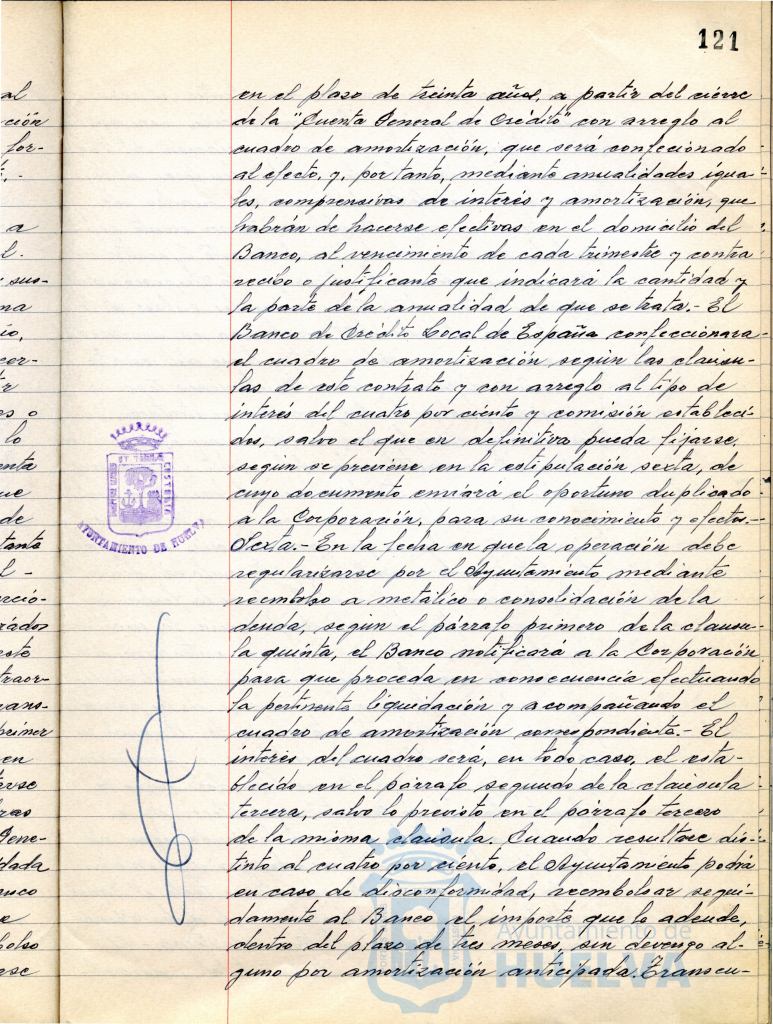 121
en el plazo de treinta años, a partir del cierre
de la "Cuenta General de Crédito" con arreglo al
cuadro de amortización, que será confeccionado
al efecto, y, por tanto, mediante anualidades igua-
les, comprensivas de interés y amortización, que
habrán de hacerse efectivas en el domicilio del
Banco, al vencimiento de cada trimestre y contra
recibo o justificante que indicará la cantidad y
la parte de la anualidad de que se trata.- El
Banco de Crédito Local de España confeccionara
el cuadro de amortización según las cláusu-
las de este contrato y con arreglo al tipo de
interés del cuatro por ciento y comisión estableci-
dos, salvo el que en definitiva pueda fijarse,
según se previene en la estipulación sexta, de
cuyo documento enviará el oportuno duplicado
a la Corporación, para su conocimiento y efectos.-
Sexta.- En la fecha en que la operación debe
regularizarse por el Ayuntamiento mediante
reembolso a metálico o consolidación de la
deuda, según el párrafo primero de la cláusu-
la quinta, el Banco notificará a la Corporación
para que proceda en consecuencia efectuando
la pertinente liquidación y acompañando el
cuadro de amortización correspondiente.- El
interés del cuadro será, en todo caso, el esta-
blecido en el párrafo segundo de la cláusula
tercera, salvo lo previsto en el párrafo tercero
de la misma cláusula. Cuando resultase dis-
tinto al cuatro por ciento, el Ayuntamiento podrá
en caso de disconformidad, reembolsar segui-
damente al Banco el importe que le adeude,
dentro del plazo de tres meses, sin devengo al-
guno por amortización anticipada. Transcu-
AYUNTAMIENTO DE HUELVA
Ayuntamiento de
HUELVA